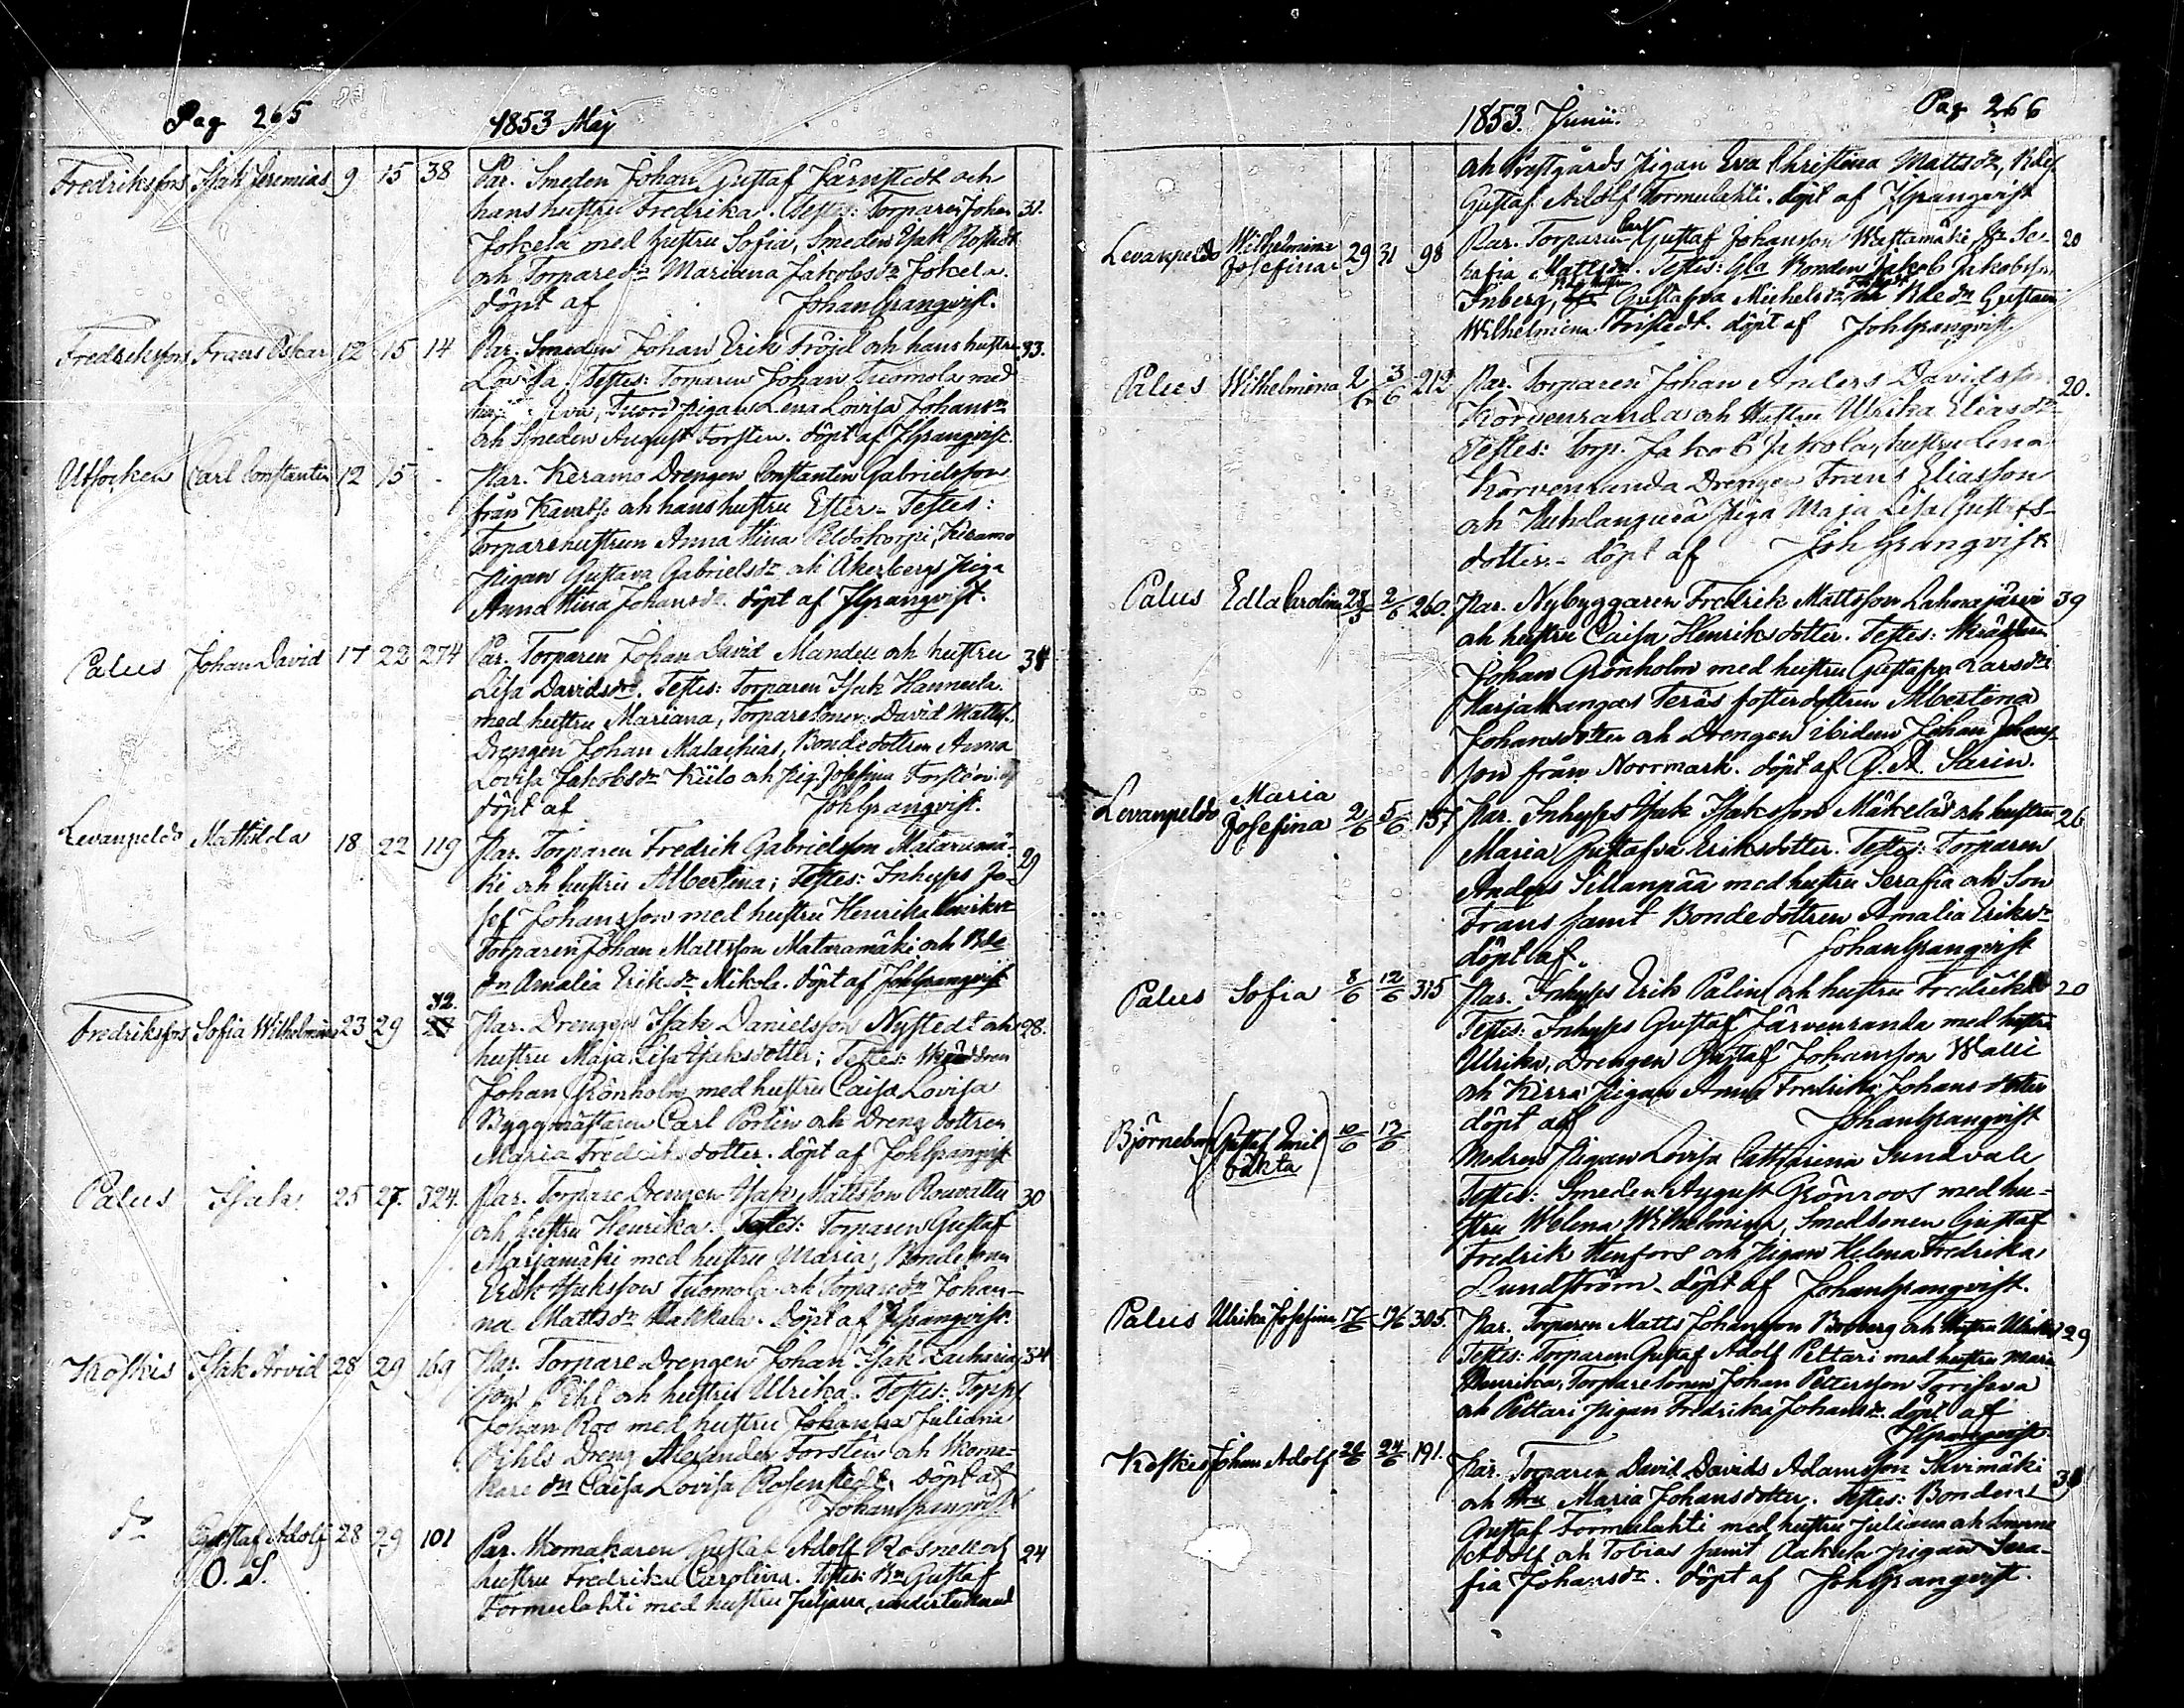 Pag 265
1853 Maj
Fredriksfors Isak Jeremias 9 15 38 Par. Smeden Johan Gustaf Järnstedt och
hans hustru Fredrika. Testes: Torparen Johan 31.
Jokela med hustru Sofia, Smeden Isak Rostedt
och Torparedr Mariana Jakobsdr Jokela.
döpt af Johan Granqvist.
Fredriksfors Frans Oskar 12 15 14 Par. Smeden Johan Erik Fröjd och hans hustru 33.
Lovisa. Testes: Torparen Johan Tuomola med
Eva, pigan Lena Lovisa Johansdr
och Smeden August Forsten. döpt af JGranqvist.
Utsocken (Carl Constantin) 12 15 Par. Keramo Drengen Constantin Gabrielsson
från och hans hustru Ester. Testes:
Torparehustrun Anna Stina Peldokorpi, Keramo
pigan Gustava Gabrielsdr och Åkerbergs piga
Anna Stina Johansdr. döpt af JGranqvist.
Palus Johan David 17 22 274 Par. Torparen Johan David Mandell och hustru 34
Lisa Davidsdr. Testes: Torparen Isak Hannula
med hustru Mariana, Torparesonen David Matts.
Drengen Johan Malachias, Bondedottren Anna
Lovisa Jakobsdr Kiilo och pig. Josefina Forstén
döpt af JohGranqvist.
Levanpeldo Mathilda 18 22 119 Par. Torparen Fredrik Gabrielsson Mataramä-
ki och hustru Albertina; Testes: Inhyses Jo- 29
sef Johansson med hustru Henrika Henriksdr
Torparen Johan Mattsson Mataramäki och Bde
dn Amalia Eriksdr Mikola. döpt af JohGranqvist
Fredriksfors Sofia Wilhelmina 23 29 32 Par. Drengen Isak Danielsson Nystedt och 28.
hustru Maja Lisa Isaksdotter; Testes: Skräddren
Johan Grönholm med hustru Caisa Lovisa
Byggmästaren Carl Portin och Dreng dottren
Maria Fredriksdotter. döpt af JohGranqvist
Palus Isak 25 27. 324. Par. Torpare Drengen Isak Mattsson Rouvattu 30
och hustru Henrika. Testes: Torparen Gustaf
Marjamäki med hustru Maria, Bondesonen
Erik Isaksson Tuomola och Torparedn Johan-
na Mattsdr Hakkala. Döpt af JGranqvist.
Koskis Isak Arvid 28 29 169 Par. Torpare Drengen Johan Isak Zacharias- 34
son Pihl och hustru Ulrika. Testes: Torp.
Johan Roo med hustru Johanna Juliana
Pihls Dreng Alexander Forstén och Skoma-
kare dn Caisa Lovisa Rosenstedt. Döpt af
Johan Granqvist.
do Gustaf Adolf 28 29 101 Par. Skomakaren Gustaf Adolf Rosnell och 24
O. S. hustru Fredrika Carolina. Testes: Bn Gustaf
Tormulahti med hustru Juljana, undertecknad
1853. Junii.
Pag 266
och Prestgårds Pigan Eva Christina Mattsdr,
Gustaf Adolf Tormulahti. döpt af JGranqvist
Levanpeldo Wilhelmina Josefina 29 31 98 Par. Torparen Carl Gustaf Johansson Wästamäki Se- 20
rafia Mattsdr. Testes: Gla Bonden Jakob Jakobsson
Inberg, Gustafva Michelsdr, Bde dn Gustava
Wilhelmina Fristedt. döpt af JohGranqvist.
Palus Wilhelmina 2/6 3/6 212 Par. Torparen Johan Anders Davidsson 20.
Körvenranda och Hustru Ulrika Eliasdr
Testes: Torp. Jakob Jakola, hustru Lena
Körvenranda Drengen Frans Eliasson
och piga Maja Lisa Gustafs-
dotter. döpt af Joh Granqvist
Palus Edla Carolina 28/5 2/6 260. Par. Nybyggaren Fredrik Mattsson Lahnajärvi 39
och hustru Caisa Henriksdotter. Testes: Skräddren
Johan Grönholm med hustru Gustafva Larsdr
Harjakangas Teräs fosterdottren Albertina
Johansdotter och Drengen ibidem Johan Johans-
son från Norrmark. döpt af G. A. Sarin.
Levanpeldo Maria Josefina 2/6 5/6 157 Par. Inhyses Isak Isaksson Mäkelä och hustru 26
Maria Gustafva Eriksdotter. Testes: Torparen
Anders Sillanpää med hustru Serafia och Son
Frans samt Bondedottren Amalia Eriksdr
döpt af Johan Granqvist
Palus Sofia 8/6 12/6 315 Par. Inhyses Erik Palin och hustru Fredrika 20
Testes: Inhyses Gustaf Järvenranda med hustru
Ulrika, Drengen Gustaf Johansson Walli
och Kirra Pigan Anna Fredrika Johansdotter
döpt af Johan Granqvist
Björneborg (Gustaf Emil oäkta) 10/6 13/6 Modren Pigan Lovisa Catharina Sundvall
Testes: Smeden August Grönroos med hu-
stru Helena Wilhelmina, Smedsonen Gustaf
Fredrik Henfors och Pigan Helena Fredrika
Lundström. döpt af Johan Granqvist.
Palus Ulrika Josefina 17/6 19/6 305. Par. Torparen Matts Johansson Broberg och Hustru Ulrika 29
Testes: Torparen Gustaf Adolf Pettari med hustru Maria
Henrika, Torparesonen Johan Pettersson Torisava
och Pettari Pigan Fredrika Johansdr. döpt af
JGranqvist.
Koskis Johan Adolf 24/6 191. Par. Torparen David Davids Adamsson Skvimäki
och Hru Maria Johansdotter. Testes: Bonden
Gustaf Tormulahti med hustru Juliana och Sönerne
Adolf och Tobias samt Aakula pigan Sera-
fia Johansdr. döpt af JohGranqvist.